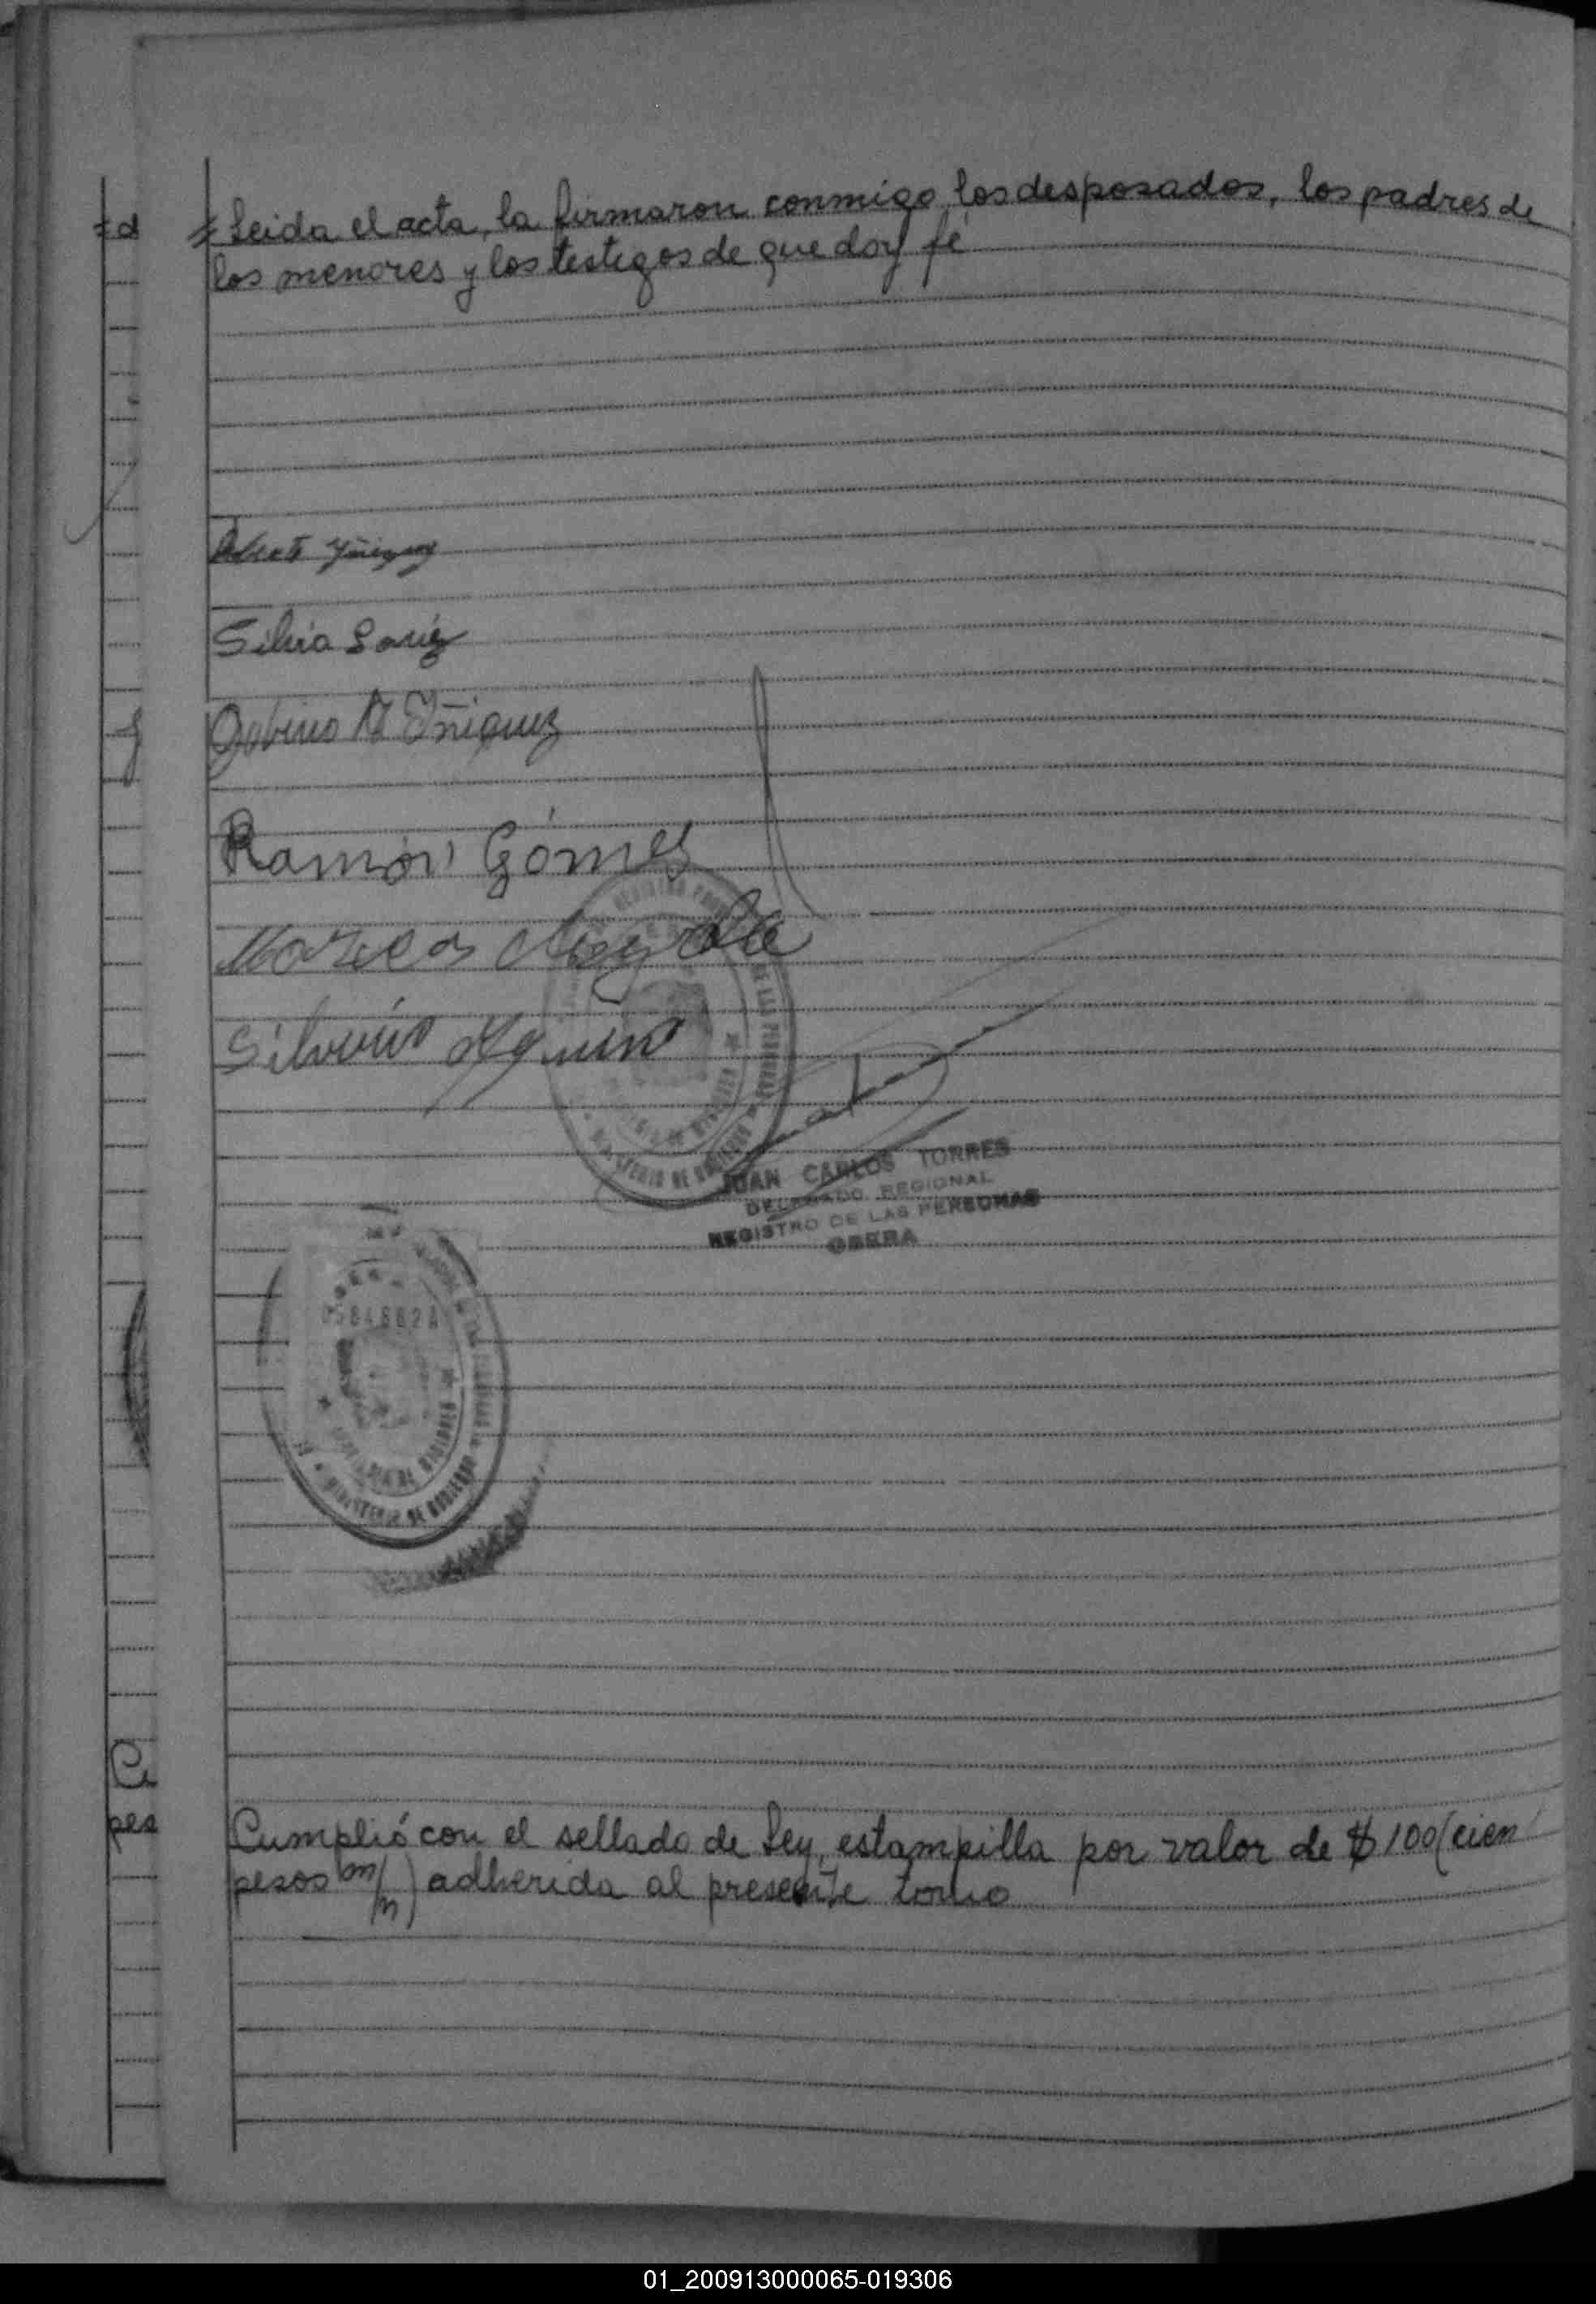 Leida el acta, la firmaron conmigo los desposados, los padres de
los menores y los testigos de que doy fé
Silvia
Gabino A Iñiguez
Ramón Gómes
Marcos
Silverio Aquino
MINISTERIO DE GOBIERNO
JUAN CARLOS TORRES
DELEGADO REGIONAL
REGISTRO DE LAS PERSONAS
OBERA
MINISTERIO DE GOBIERNO
Cumplió con el sellado de Ley, estampilla por valor de $ 100 (cien
pesos m/n) adherida al presente tomo
01_200913000065-019306